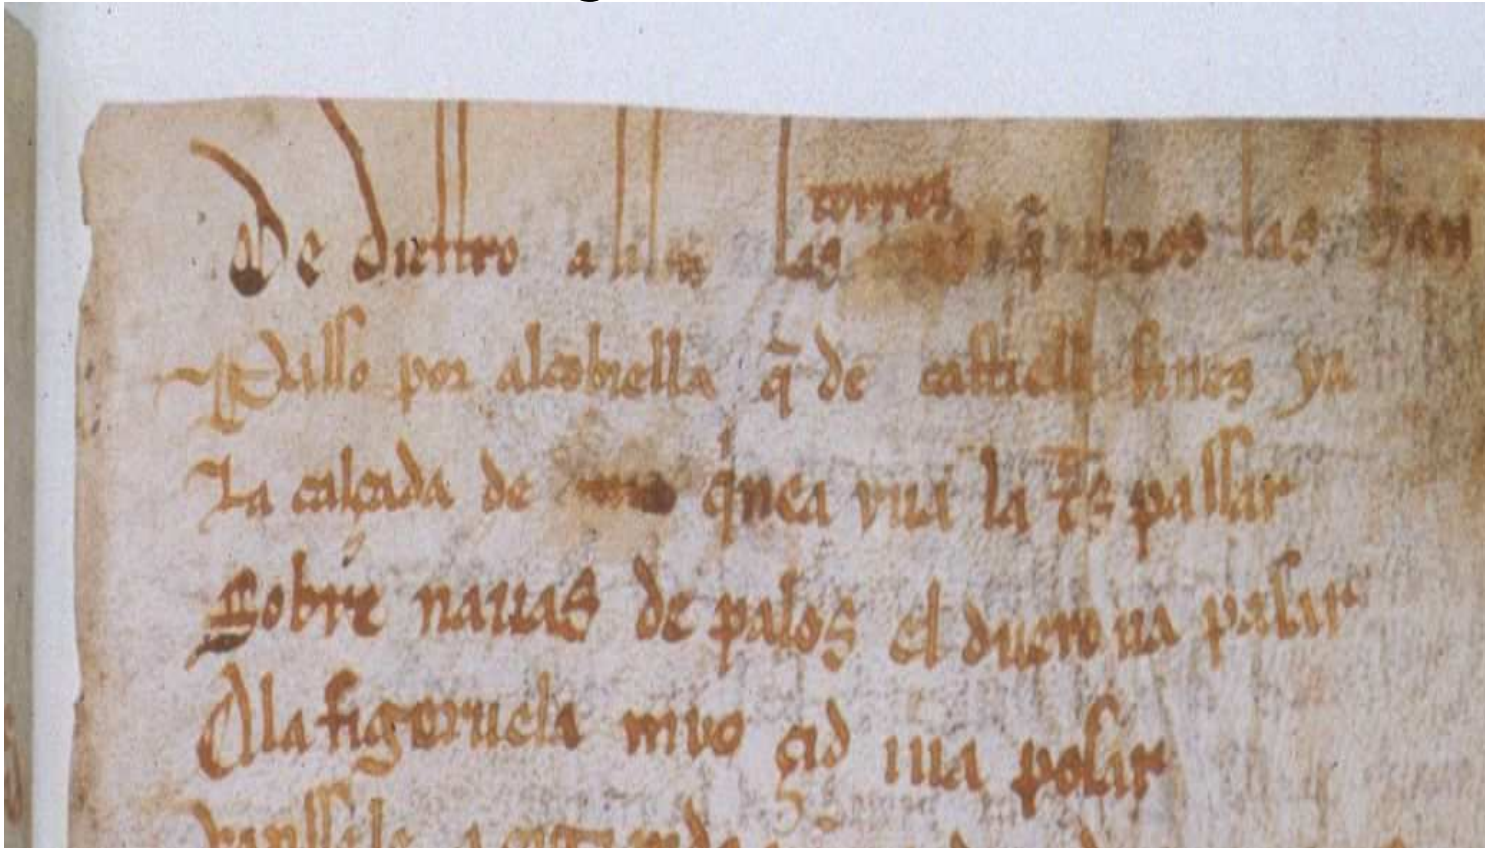 torres
De dieſtro a lilon las q̃ moros las han
Paſſo por alcobiella q̃ de caſtiello fines ya
La calçada de qinea yua la tᵃs paſſar
Sobre nauas de palos el duero ua paſar
Ala figeruela myo çid iua poſar